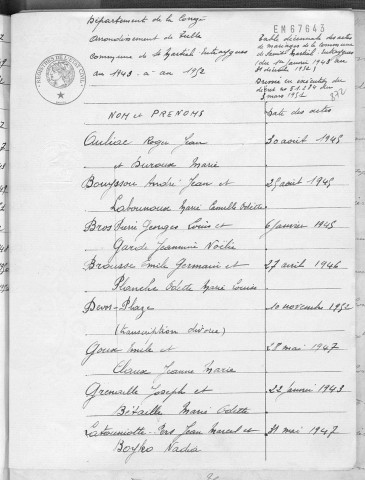 Département de la Corrèze
Arrondissement de Tulle
Commune de St Martial Entraygues
an 1943 à an 1952
EM67643
Table décennale des actes
de mariages de la commune
de Saint Martial-Entraygues
du 1er janvier 1943 au
31 décembre 1952
Dressée en exécution du
décret no 51.284 du
3 mars 1951
NOM et PRENOMS
Date des actes
Auliac Roger Jean 30 août 1945
et Buroux Marie
Bouysson André Jean et 25 août 1945
Labounoux Marie Camille Odette
Bros Pierre Georges Louis et 6 janvier 1945
Garde Jeannine Noélie
Brousse Emile Germain et 27 avril 1946
Planche Odette Marie Louise
Devos-Plaze 10 novembre 1952
(transcription divorce)
Goux Emile et 28 mai 1947
Claux Jeanne Marie
Grenaille Joseph et 22 janvier 1943
Bétaille Marie Odette
Jean Marcel et 31 mai 1947
Boyko Nadia